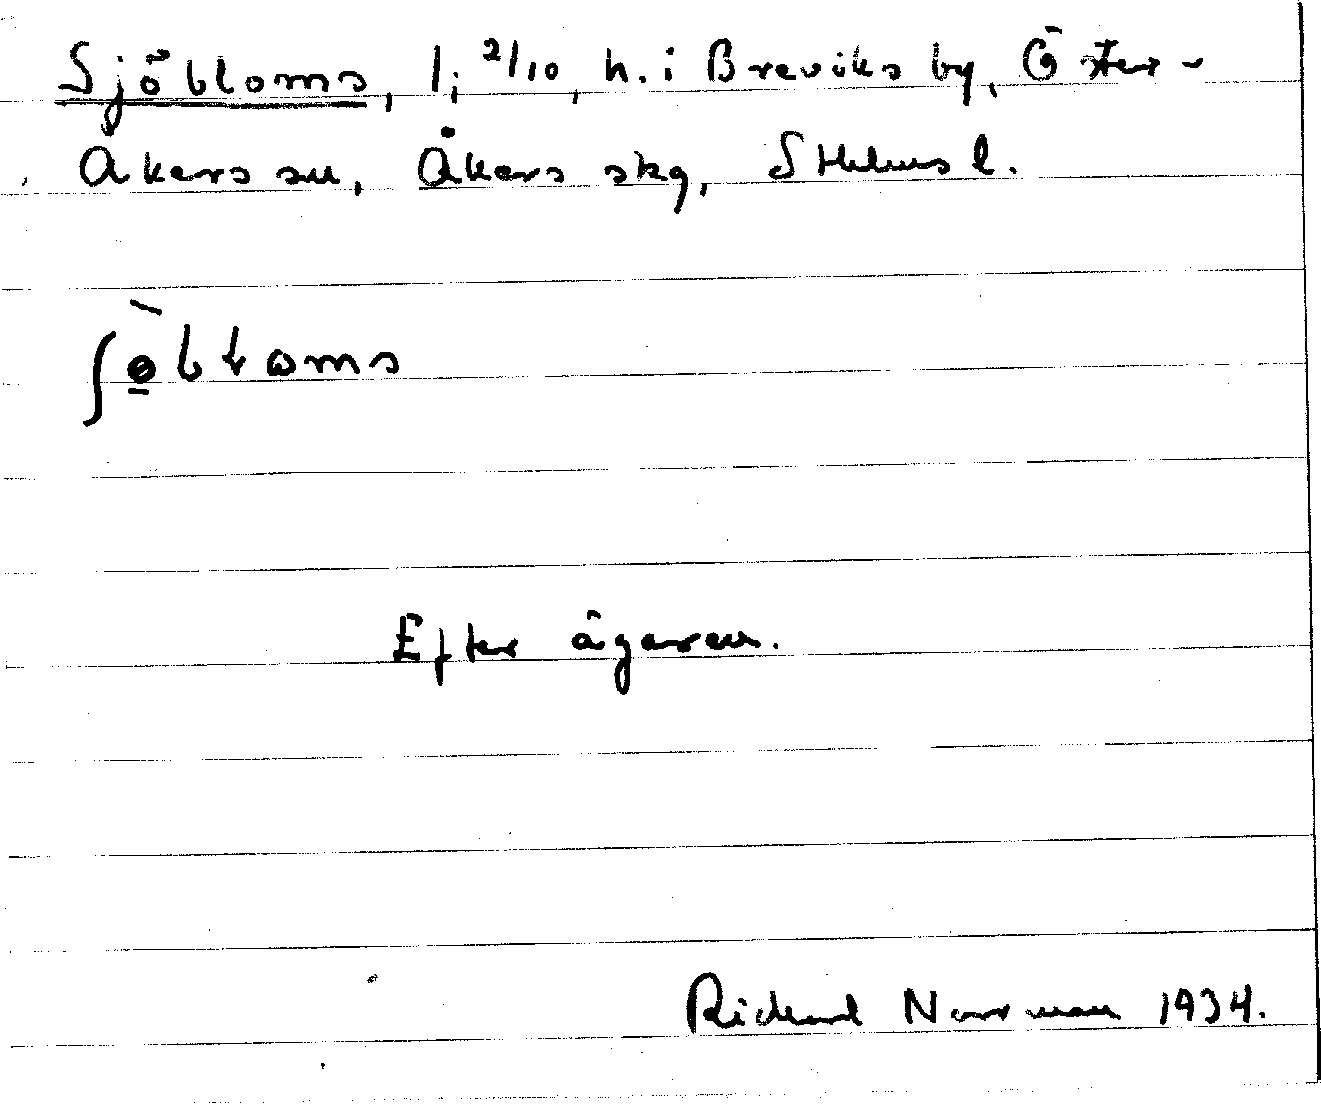 Sjöbloms, 1; 2/10, h. i Breviks by, Öster-
Åkers sn, Åkers skg, Sthlms l.
Efter ägaren.
Richard Norrman 1934.